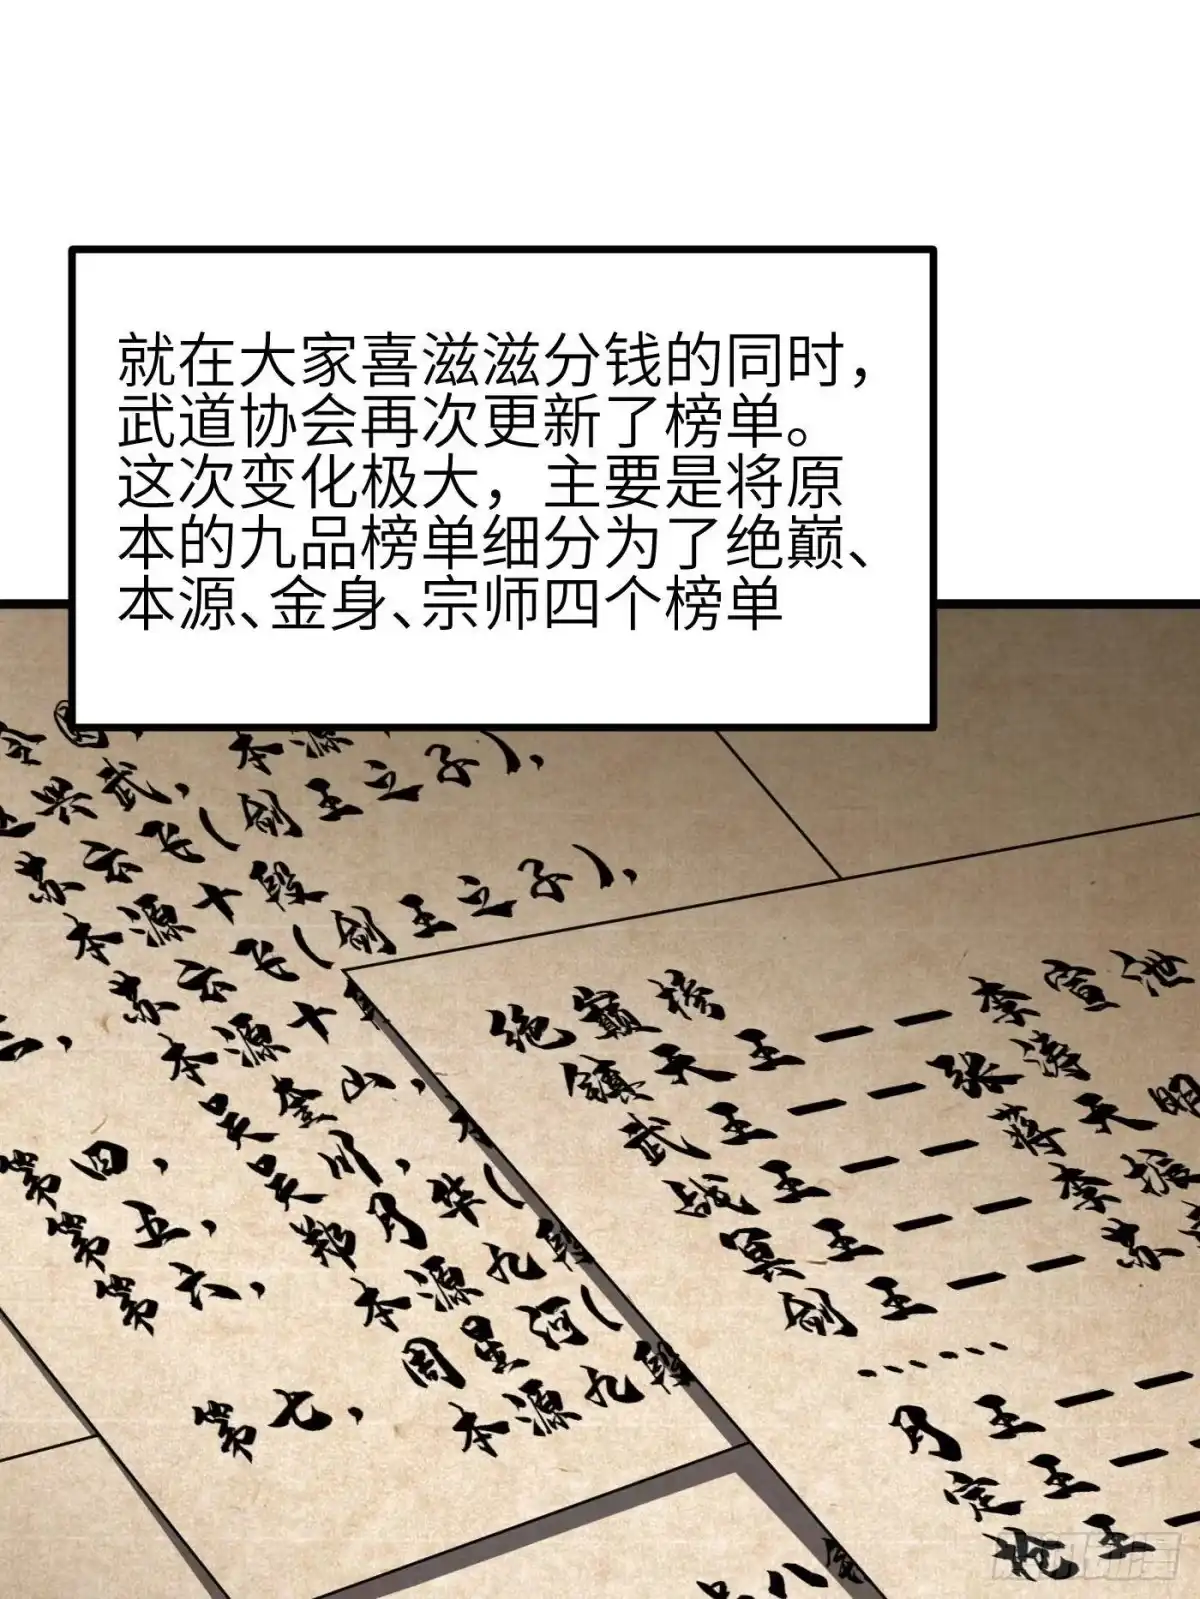 就在大家喜滋滋分钱的同时，
武道协会再次更新了榜单。
这次变化极大，主要是将原
本的九品榜单细分为了绝巅、
本源、金身、宗师四个榜单
本源十
兴武，
(剑王之子),
本源十段
苏云飞(剑王之子),
三，
苏云飞
本源十
第四，吴奎山，本
第五，吴川，
第六，郑月华(
本源九段
第七，周星河(
本源九段
绝巅榜
镇天王——李宣泄
武王——张涛
战王——蒋天明
冥王——李振
剑王——苏
……
月王——
定王——
王——
八段